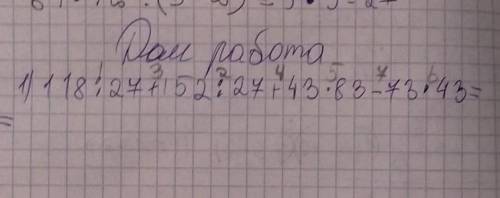 Дом работа
1 3 2 4 5 7 6
1) 118:27+152:27+43·83-73·43=
=